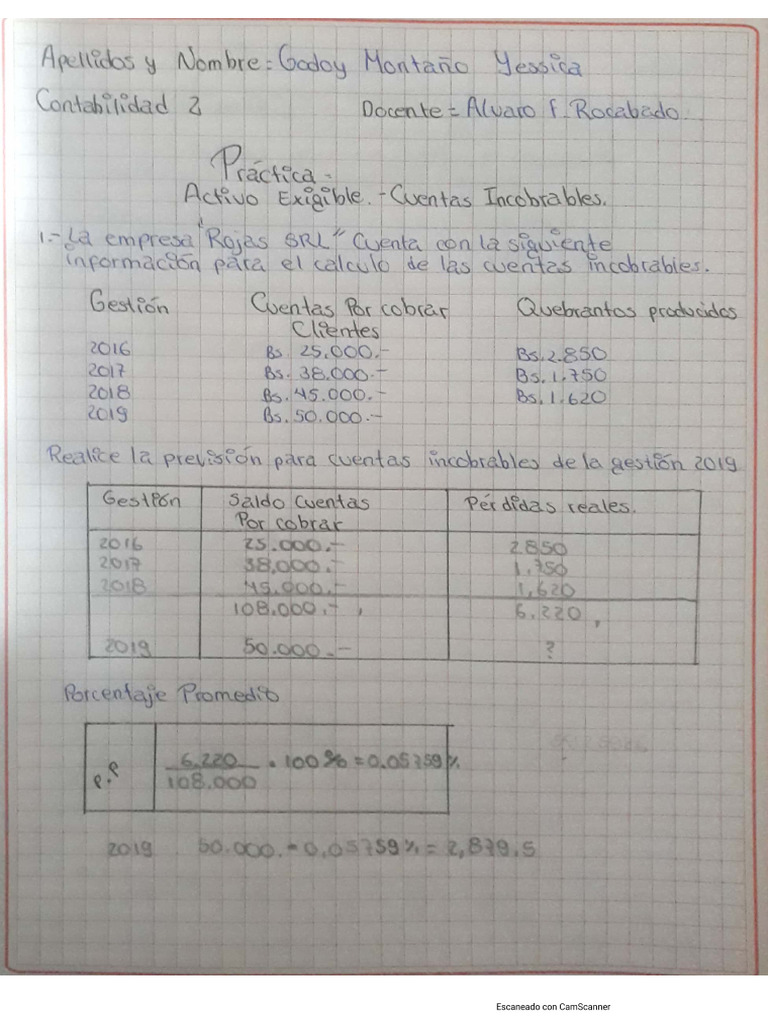 Apellidos y Nombre = Godoy Montaño Yessica
Contabilidad 2 Docente = Alvaro F. Rocabado.
Práctica.-
Activo Exigible.-Cuentas Incobrables.
1.- La empresa "Rojas SRL" Cuenta con la siguiente
información para el calculo de las cuentas incobrables.
Gestión Cuentas Por cobrar Quebrantos producidos
Clientes
2016 Bs. 25.000.- Bs.2.850
2017 Bs. 38.000.- Bs.1.750
2018 Bs. 45.000.- Bs.1.620
2019 Bs. 50.000.-
Realice la previsión para cuentas incobrables de la gestión 2019
Gestión Saldo Cuentas Pérdidas reales.
Por cobrar
2016 25.000.- 2.850
2017 38.000.- 1.750
2018 45.000.- 1,620
108.000.-, 6.220,
2019 50.000.- ?
Porcentaje Promedio
P.P 6.220 * 100% = 0.05759%
108.000
2019 50.000.- 0,05759% = 2,879,5
Escaneado con CamScanner